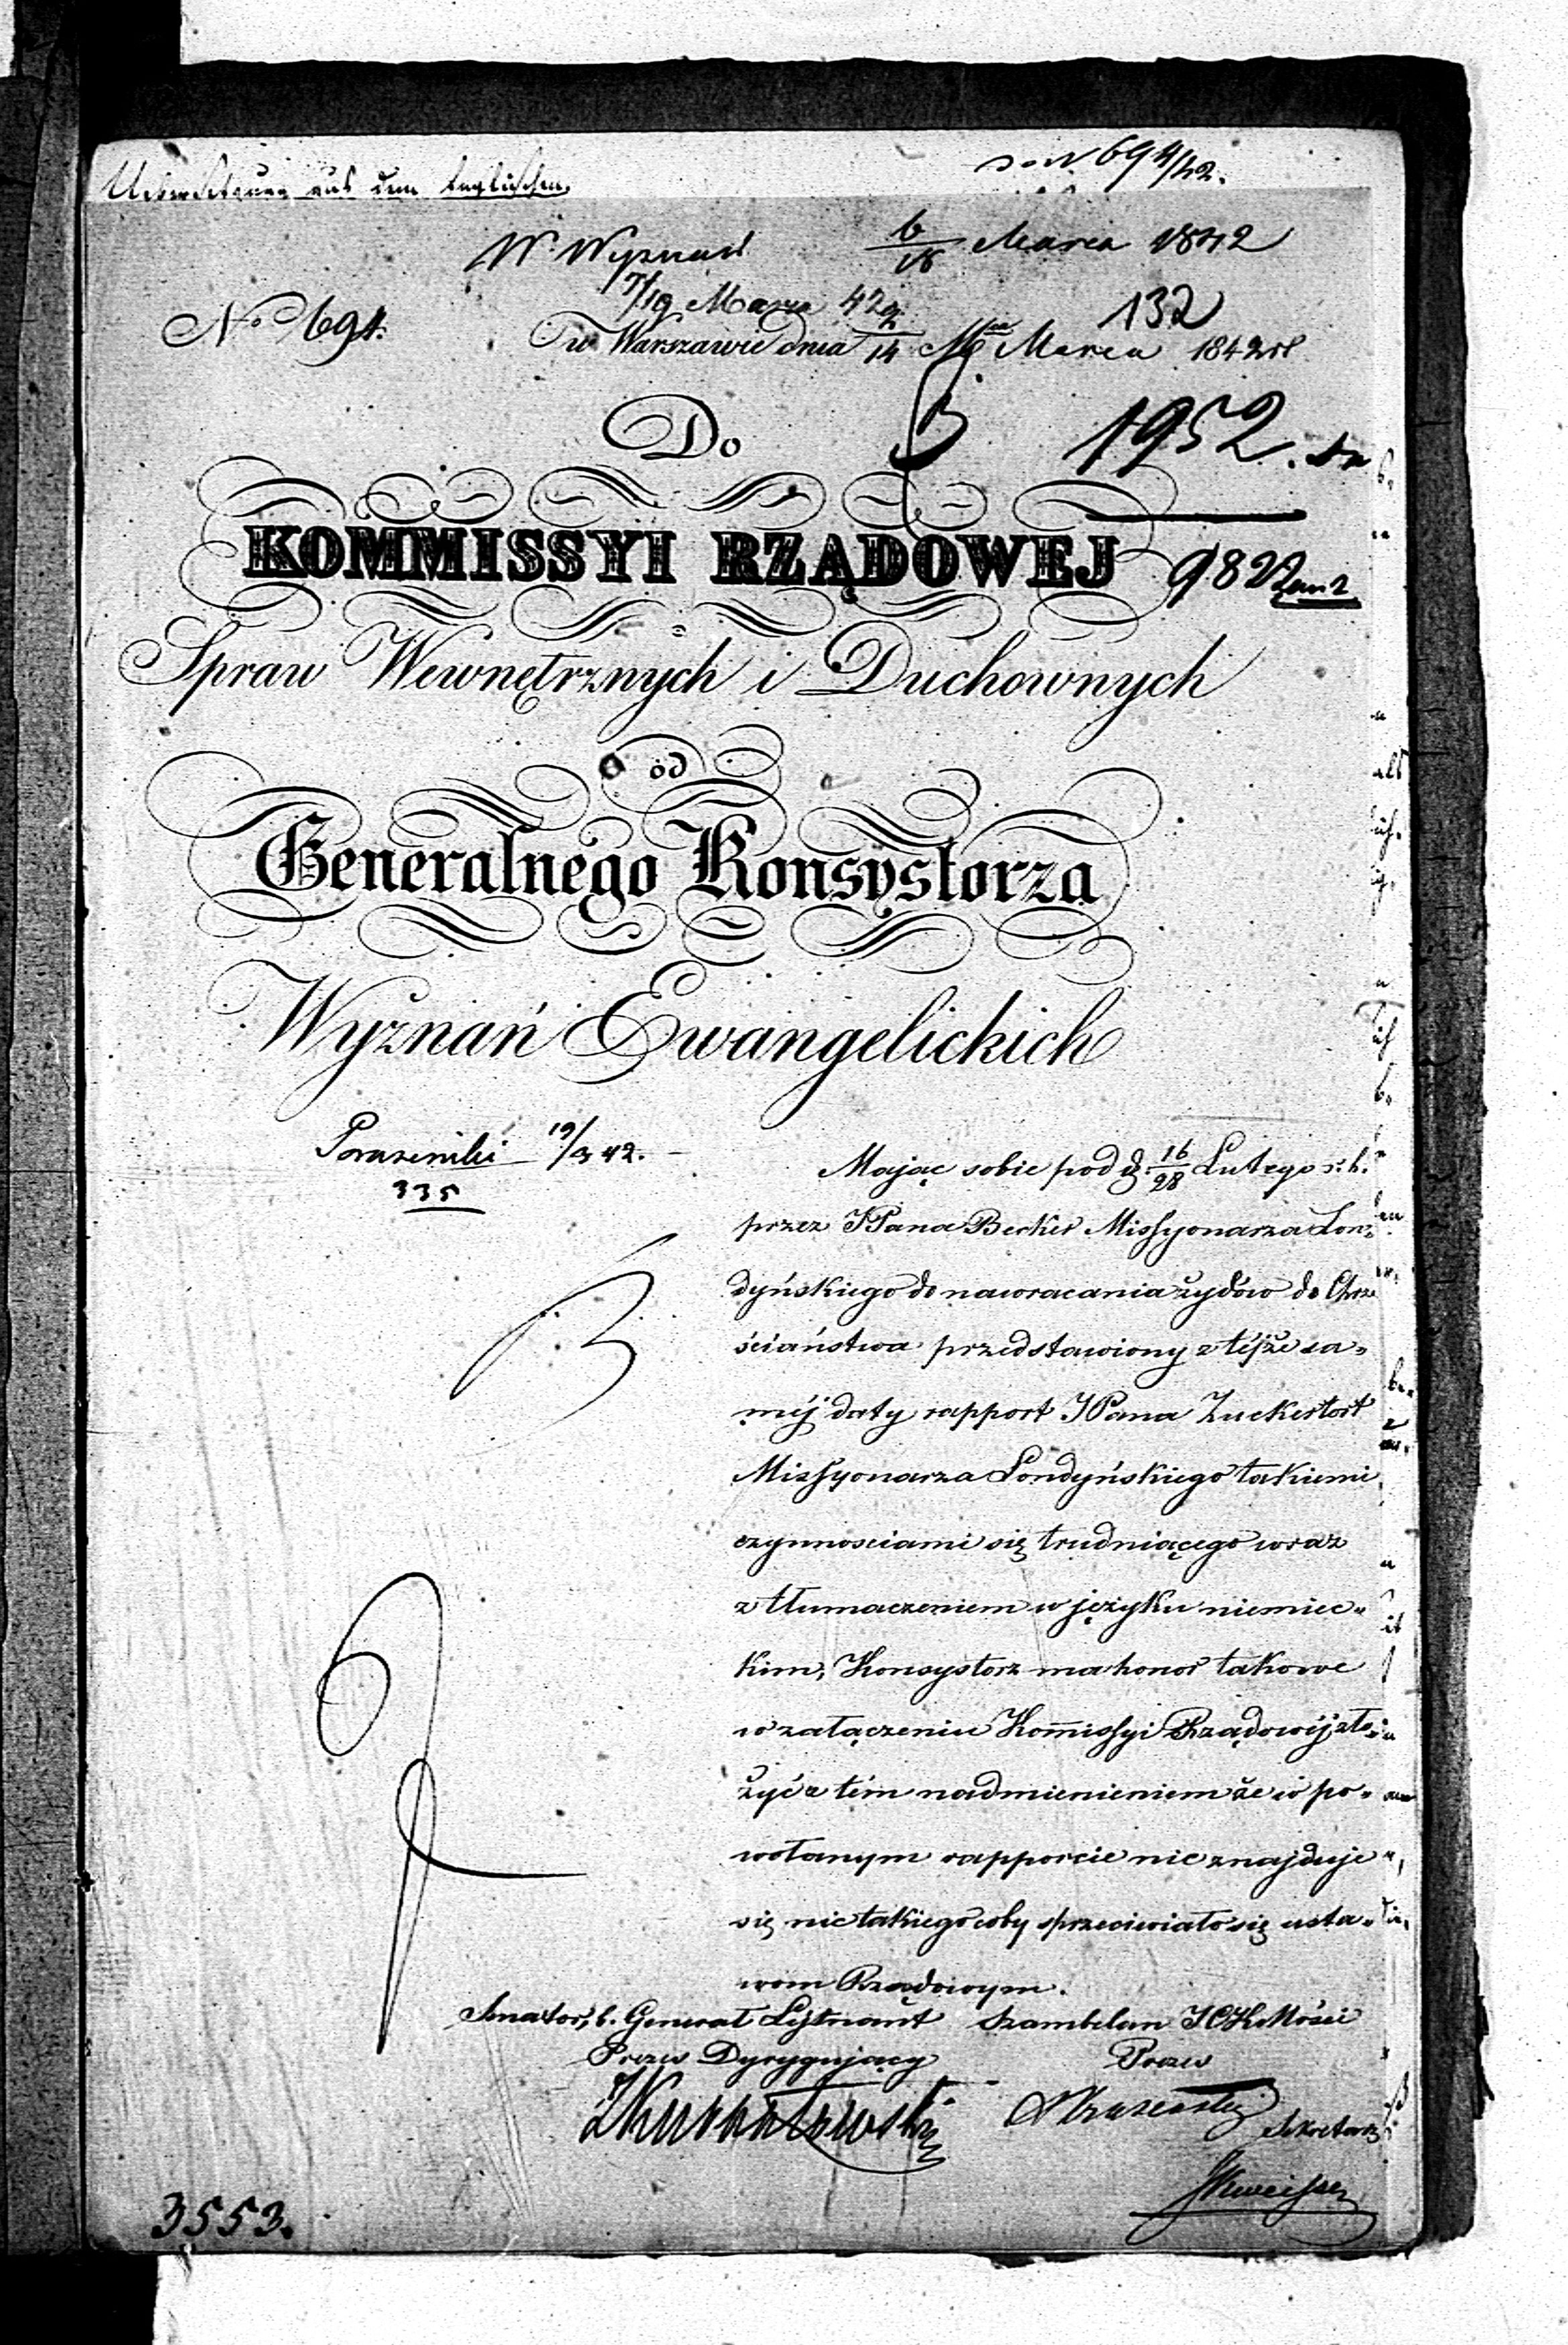 Uebersetzung aus dem Englischen
694/42.
W. Wyznań 6/18 Marca 1842
7/19 Marca 42
132
No 694.
w Warszawie dnia 2/14 Marca 1842 r
Do
1952.
KOMMISSYI RZĄDOWEJ
982
Spraw Wewnętrznych i Duchownych
od
Generalnego Konsystorza
Wyznań Ewangelickich
19/3 42.
335
Mając sobie pod d. 16/28 Lutego r. b.
przez JPana Becker Missyonarza Lon-
dyńskiego do nawracania żydów do Chrze
ściaństwa przedstawiony z tejże sa-
mej daty rapport JPana Zuckertort
Missyonarza Londyńskiego takiemi
czynnosciami się trudniącego wraz
z tłumaczeniem w języku niemiec-
kim, Konsystorz ma honor takowe
w załączeniu Kommissyi Rządowéj zło-
żyć z tém nadmienieniem że w po-
wołanym rapporcie nie znajduje
się nic takiego coby sprzeciwiało się usta-
wom Rządowym.
Senator, b. Generał Lejtnant Szambelan JCKMości
Prezes Dyrygujący Prezes
Sekretarz
3553.